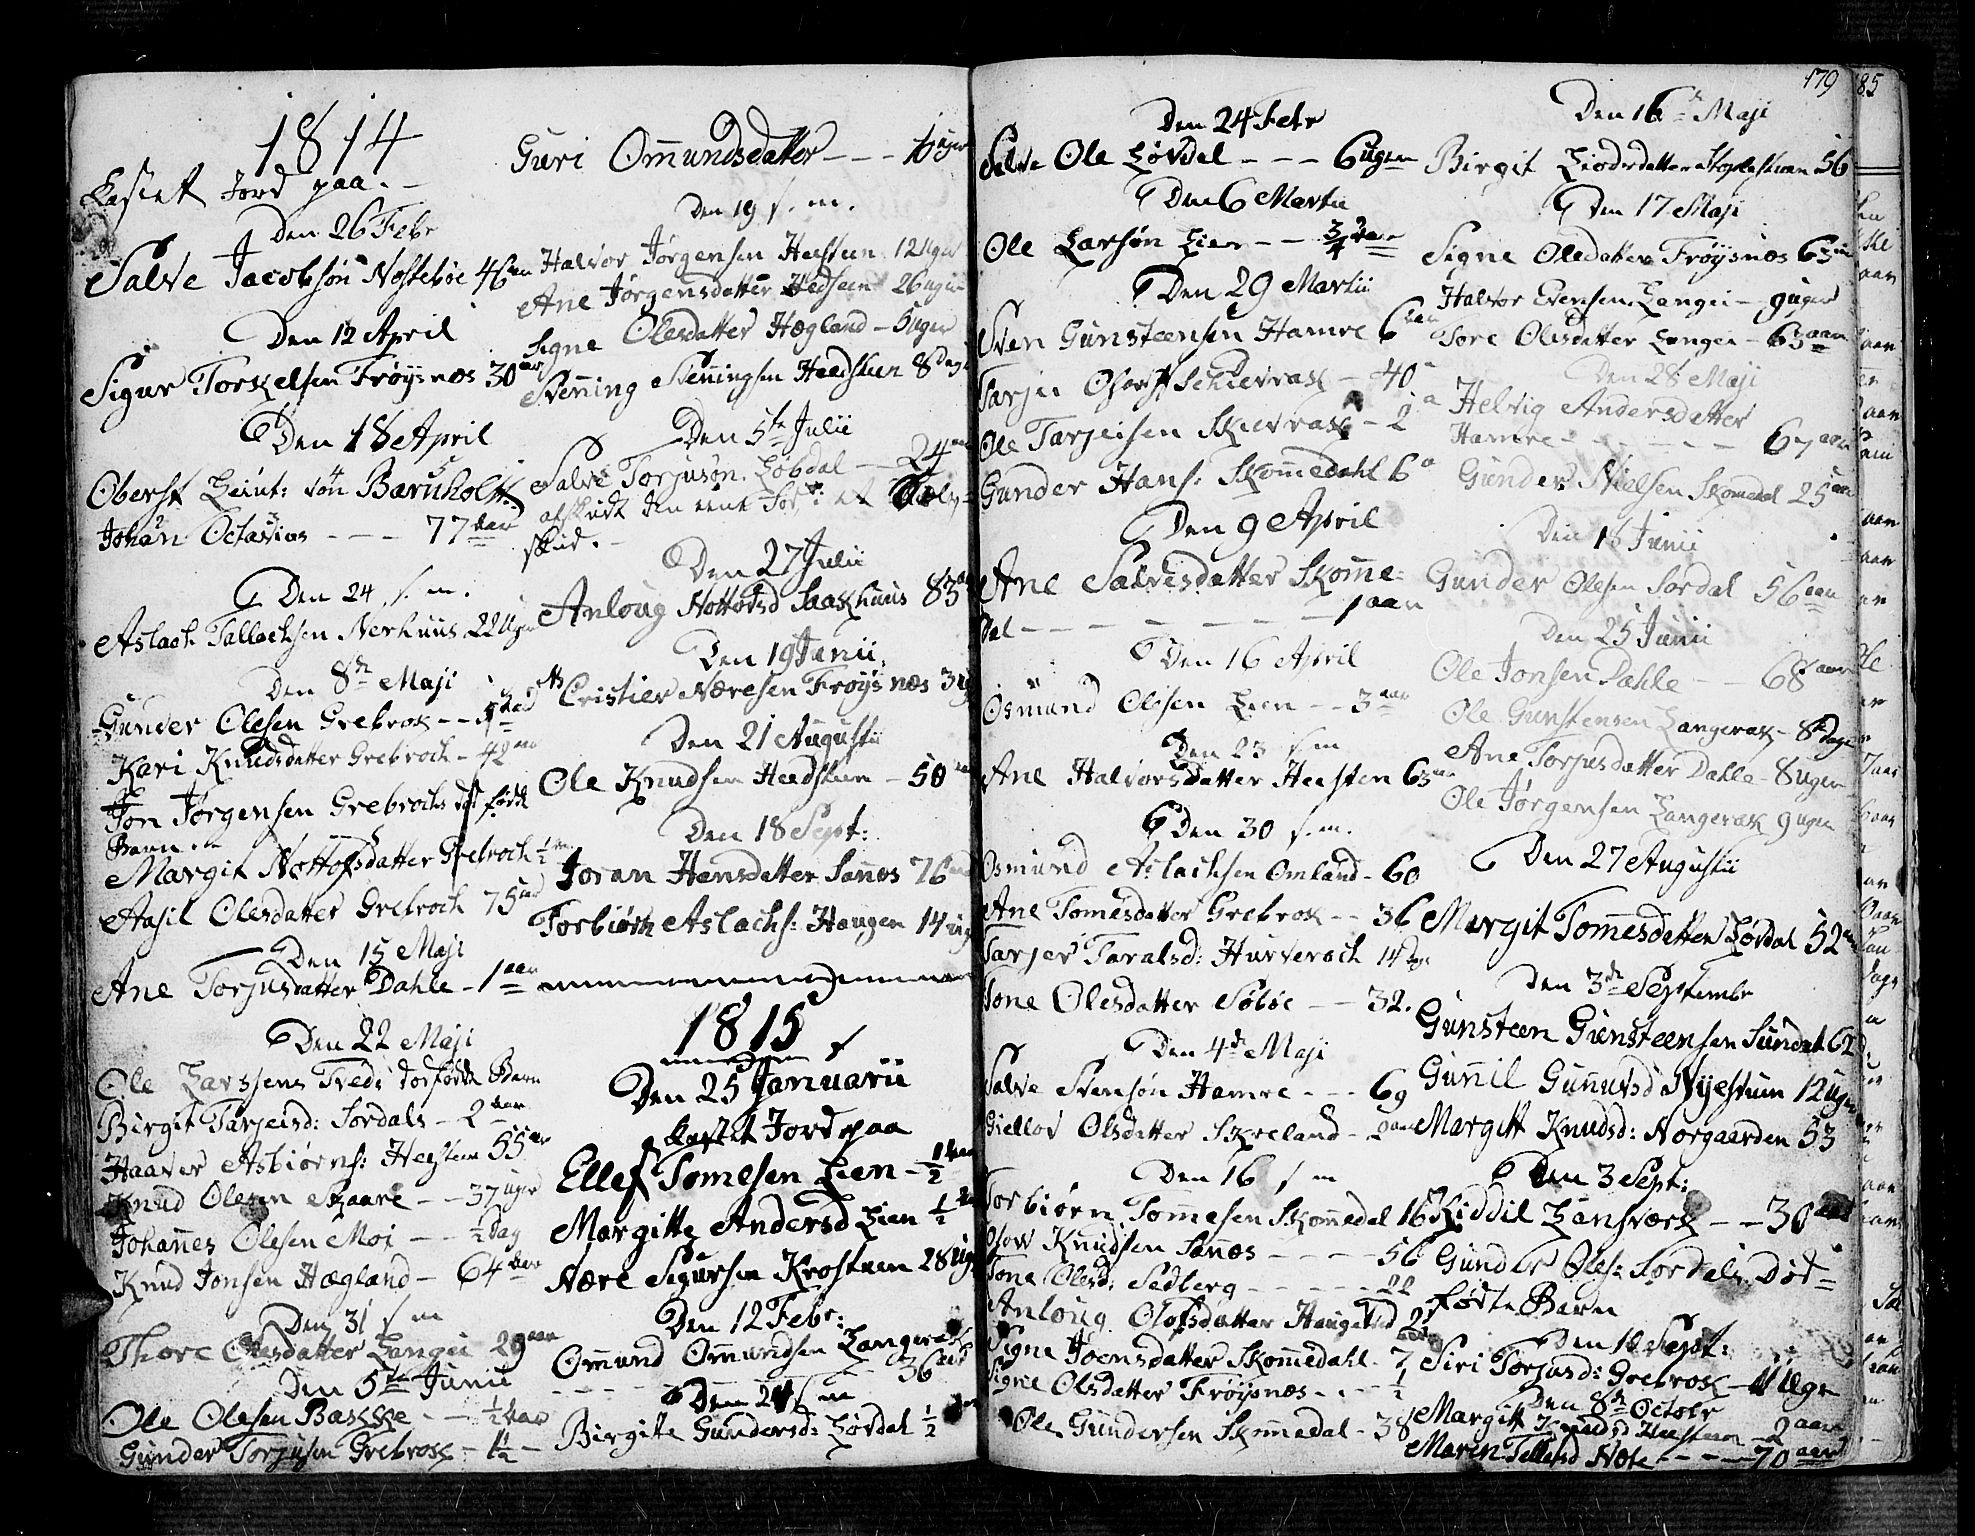 1814
Kastet Jord paa.
Den 26 Febr
Salve Jacobsøn Nostebøe 46 aar
Den 12 April
Sigur Torkelsen Frøysnæs 30 aar
Den 18 April
Oberst Leint: von Bærnholdt
Johan Octavius - - - 77 aar
Den 24 s. m.
Aslach Tallachsen Nerhuus 22 Uger
Den 8de Maji
Gunder Olesen Grebrok - -
Kari Knudsdatter Grebroch - 42 aar
Jon Jørgensen Grebrochs død fødte
Barn
Margit Nottofsdatter Grebroch ½
Aasil Olesdatter Grebroch 75
Den 15 Maji
Ane Torjusdatter Dahle - 1 aar
Den 22 Maji
Ole Larssens Tvedt Barn
Birgit Tarjeisd: Sordals - 2 aar
Haaver Asbiørns: Heestem 55 aar
Knud Olesen Skaare - - 37 uger
Johannes Olesen Moi - - ½ Dag
Knud Jonsen Hægland - 64 aar
Den 31 s m
Thore Olesdatter Langei 29 aar
Den 5te Junii
Ole Olesen Bakke - - ½ aar
Gunder Torjusen Grebrok - 1½ -
Guri Omundsdatter - - - 10 uger
Den 19 s. m.
Halvor Jørgensen Heesteen 12 Uger
Ane Jørgensdatter Hedsem 26 uger
Signe Olesdatter Hægland - 5 uger
Henning Henningsen Heedsteen 8 Dage
Den 5te Julii
Salve Torjusøn Løbdal - - 24 aar
afskudt den eene Fod
skud.
Den 27 Julii
Anloug Nottovsd Aaskhuus 83
Den 19 Junii
Cristier Næresen Frøysnæs 3
Den 21 Augustii
Ole Knudsen Heedsteen - 50
Den 18 Sept:
Joran Hansdatter Sanæs 76
Torbiørn Aslachs: Haugen 14
1815
Den 25 Januarii
kastet Jord paa
Ellef Tomesen Lien - ½
Margitte Andersd Lien ½
Nære Sigursen Krosteen 28 Ug
Den 12 Febr:
Omund Omundsen Langerak
- - - - - - 36 aar
Den 24 s m
Birgitte Gundersd: Lørdal ½
Den 24 Febr
Salve Ole Løvdal - - - 6 ugen
Den 6 Martii
Ole Larsøn Lien - - ¾ aar
Den 29 Martii
Sven Gunsteensen Hamre 6 aar
Tarjei Skievrak - 40
Ole Tarjeisen Skievrak - 2
Gunder Hans: Skomedahl 6
Den 9 April
Ane Salvesdatter Skome=
dal - - - - - - - 1 aar
Den 16 April
Osmund Olsen Lien - - 3 aar
Den 23 s m
Ane Halvorsdatter Heesten 63
Den 30 s. m.
Osmund Aslachsen Omland - 60
Ane Tomesdatter Grebrok - - 36
Tarjer Taralsd: Hurverach 14 Dage
Tone Olesdatter Søbøe - - 32.
Den 4de Maji
Salve Svensøn Hamre - - - 69
Giellov Olsdatter Skreland -
Den 16 s m
Torbiørn Tomesen Skomedal 16
Osow Knudsen Sanæs - - - - 56
Tone Olesd: Sedberg - - - - -
Anloug Olofsdatter
Signe Joensdatter Skomedahl - 7
Signe Olsdatter Frøysnæs - - - ½
Ole Gundersen Skomedal - 38
179
Den 16de Maji
Birgit 56
Den 17 Maji
Signe Olesdatter Frøysnæs 63
Halvor Evensen Langei - 9 uger
Tore Olesdatter Langei - 63 aar
Den 28 Maji
Helvig Andersdatter
Hamre - - - - - - 67 aar
Gunder Nielsen Skomedal 25 aar
Den 18 Junii
Gunder Olesen Sordal 56 aar
Den 25 Junii
Ole Jonsen Dahle - - 68 aar
Ole Gunstensen Langerak - 8 Dage
Ane Torjusdatter Dahle - 8 uger
Ole Jørgensen Langerak 9 uger
Den 27 Augustii
Margit Tomesdatter Lørdal 52
Den 3de Septembr
Gunsteen Gunsteensen Sundet 62
Gunil Gunulvsd Nyesteen 12 Uger
Margitt Knudsd: Norgaarden 53
Den 3 Sept:
Kiddil Langsværk - - 30 aar
Gunder Oles: Sordals Død=
fødte Barn
Den 10 Sept:
Siri Torjusd: Grebrok - 11 Uger
Den 8de Octobr
Margit Knudsd Heesteen - 2 aar
Maren Tellefsd Næte - - - - 70 aar
185